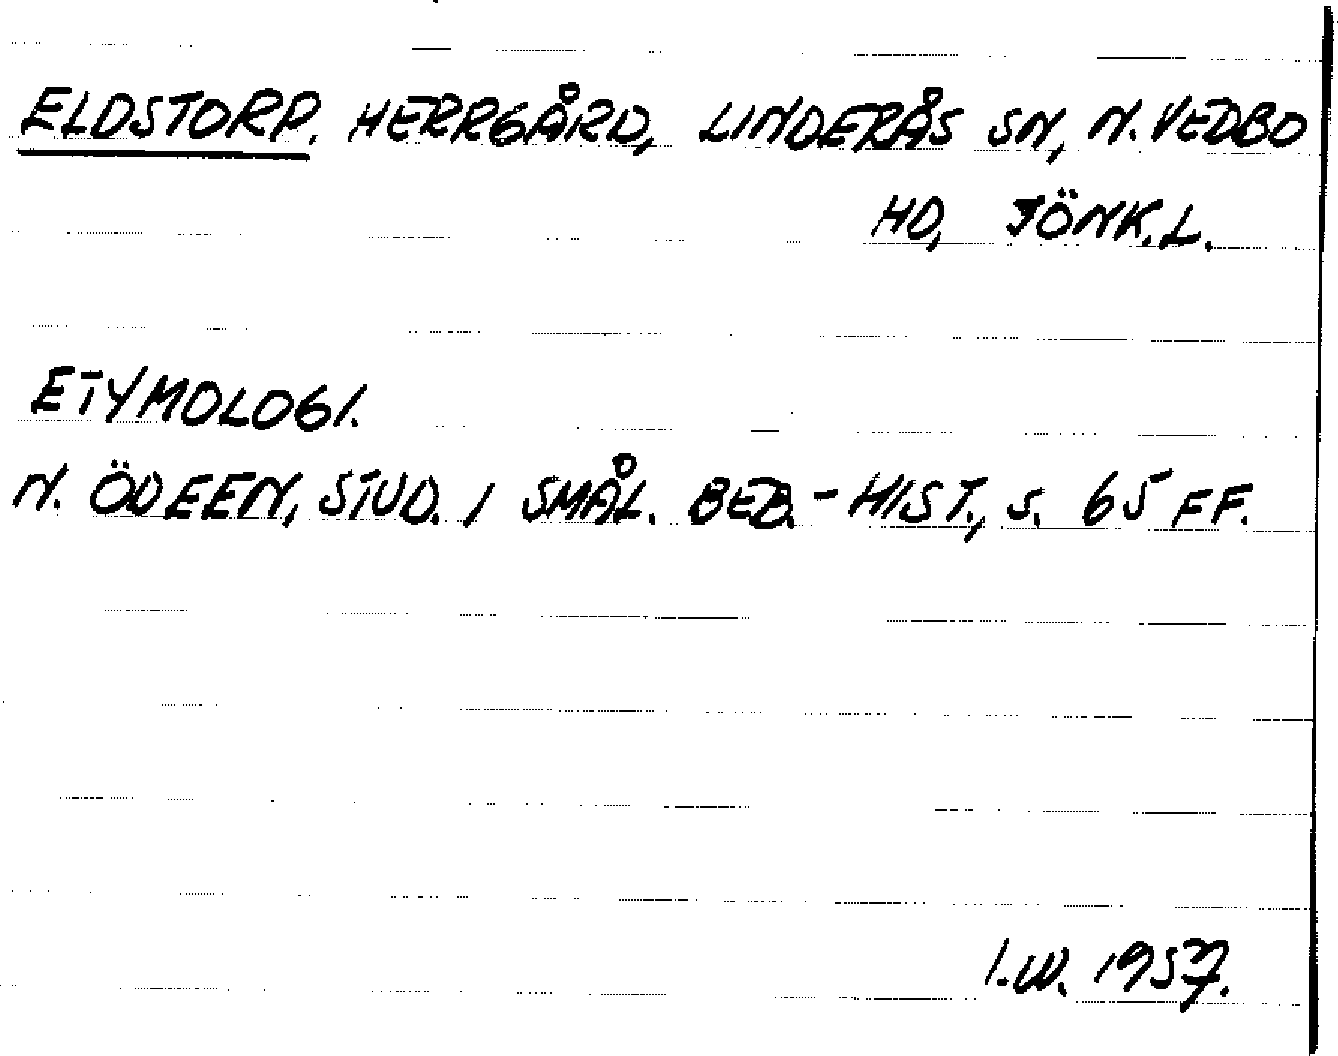 ELDSTORP. HERRGÅRD, LINDERÅS SN, N. VEDBO
HD, JÖNK.L.
ETYMOLOGI.
N. ÖDEEN, STUD. I SMÅL. BEB.-HIST., S. 65 FF.
I.W. 1957.